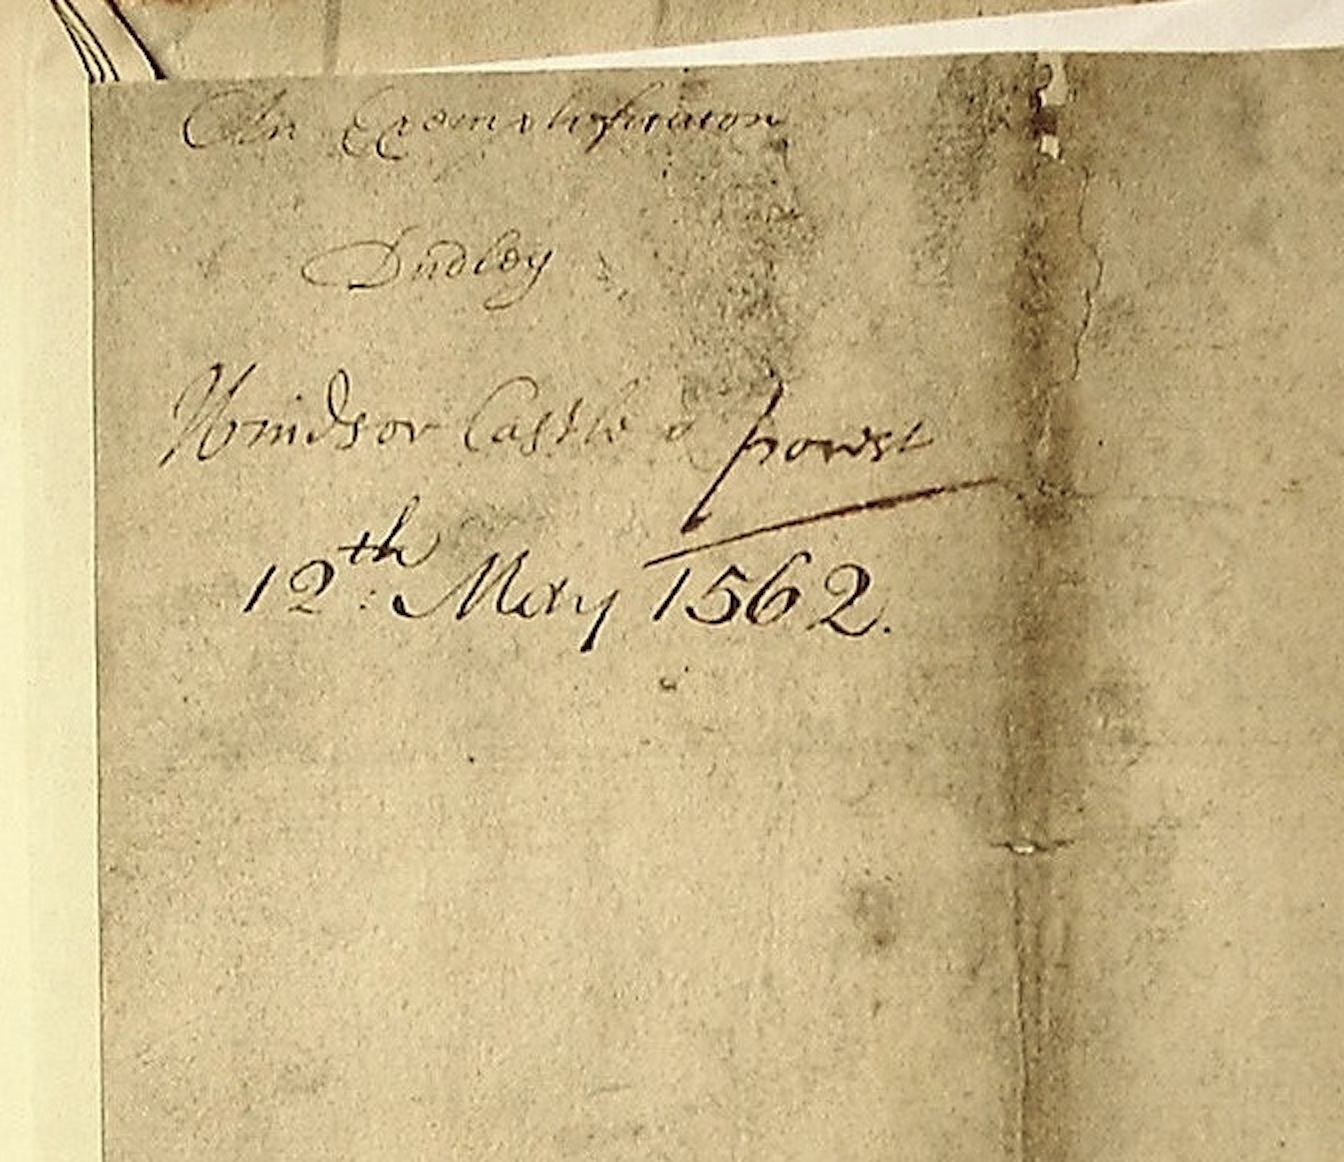 An Exemplificacon
Dudley
Windsor Castle & fforrest
12th: May 1562.